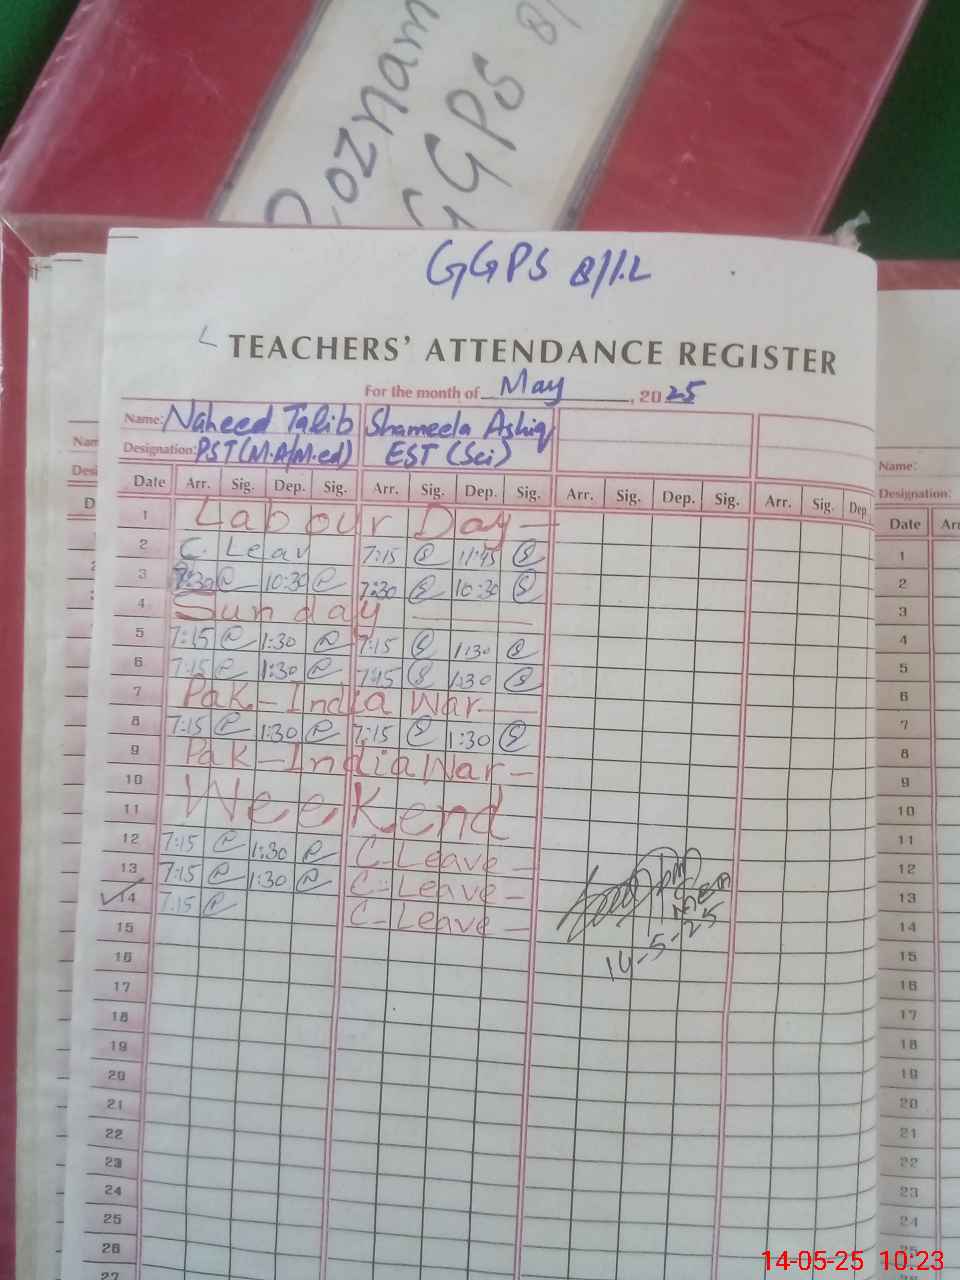 Roznam
GGPS 8/
GGPS 8/1.L
TEACHERS' ATTENDANCE REGISTER
For the month of May, 2025
Name: Naheed Talib Shameela Ashiq
Designation: PST (M.A/M.ed) EST (Sci)
Date Arr. Sig. Dep. Sig. Arr. Sig. Dep. Sig. Arr. Sig. Dep. Sig. Arr. Sig. Dep
1 Labour Day
2 C. Leav 7:15 11:45
3 7:30 10:30 7:30 10:30
4 Sunday
5 7:15 1:30 7:15 1:30
6 7:15 1:30 7:15 1:30
7 Pak-India War
8 7:15 1:30 7:15 1:30
9 Pak-India War
10 Weekend
11
12 7:15 1:30 C-Leave
13 7:15 1:30 C-Leave
14 7:15 C-Leave
15
14-5-25
16
17
18
19
20
21
22
23
24
25
26
27
Name:
Designation:
Date Arr
1
2
3
4
5
6
7
8
9
10
11
12
13
14
15
16
17
18
19
20
21
22
23
24
25
26
14-05-25 10:23